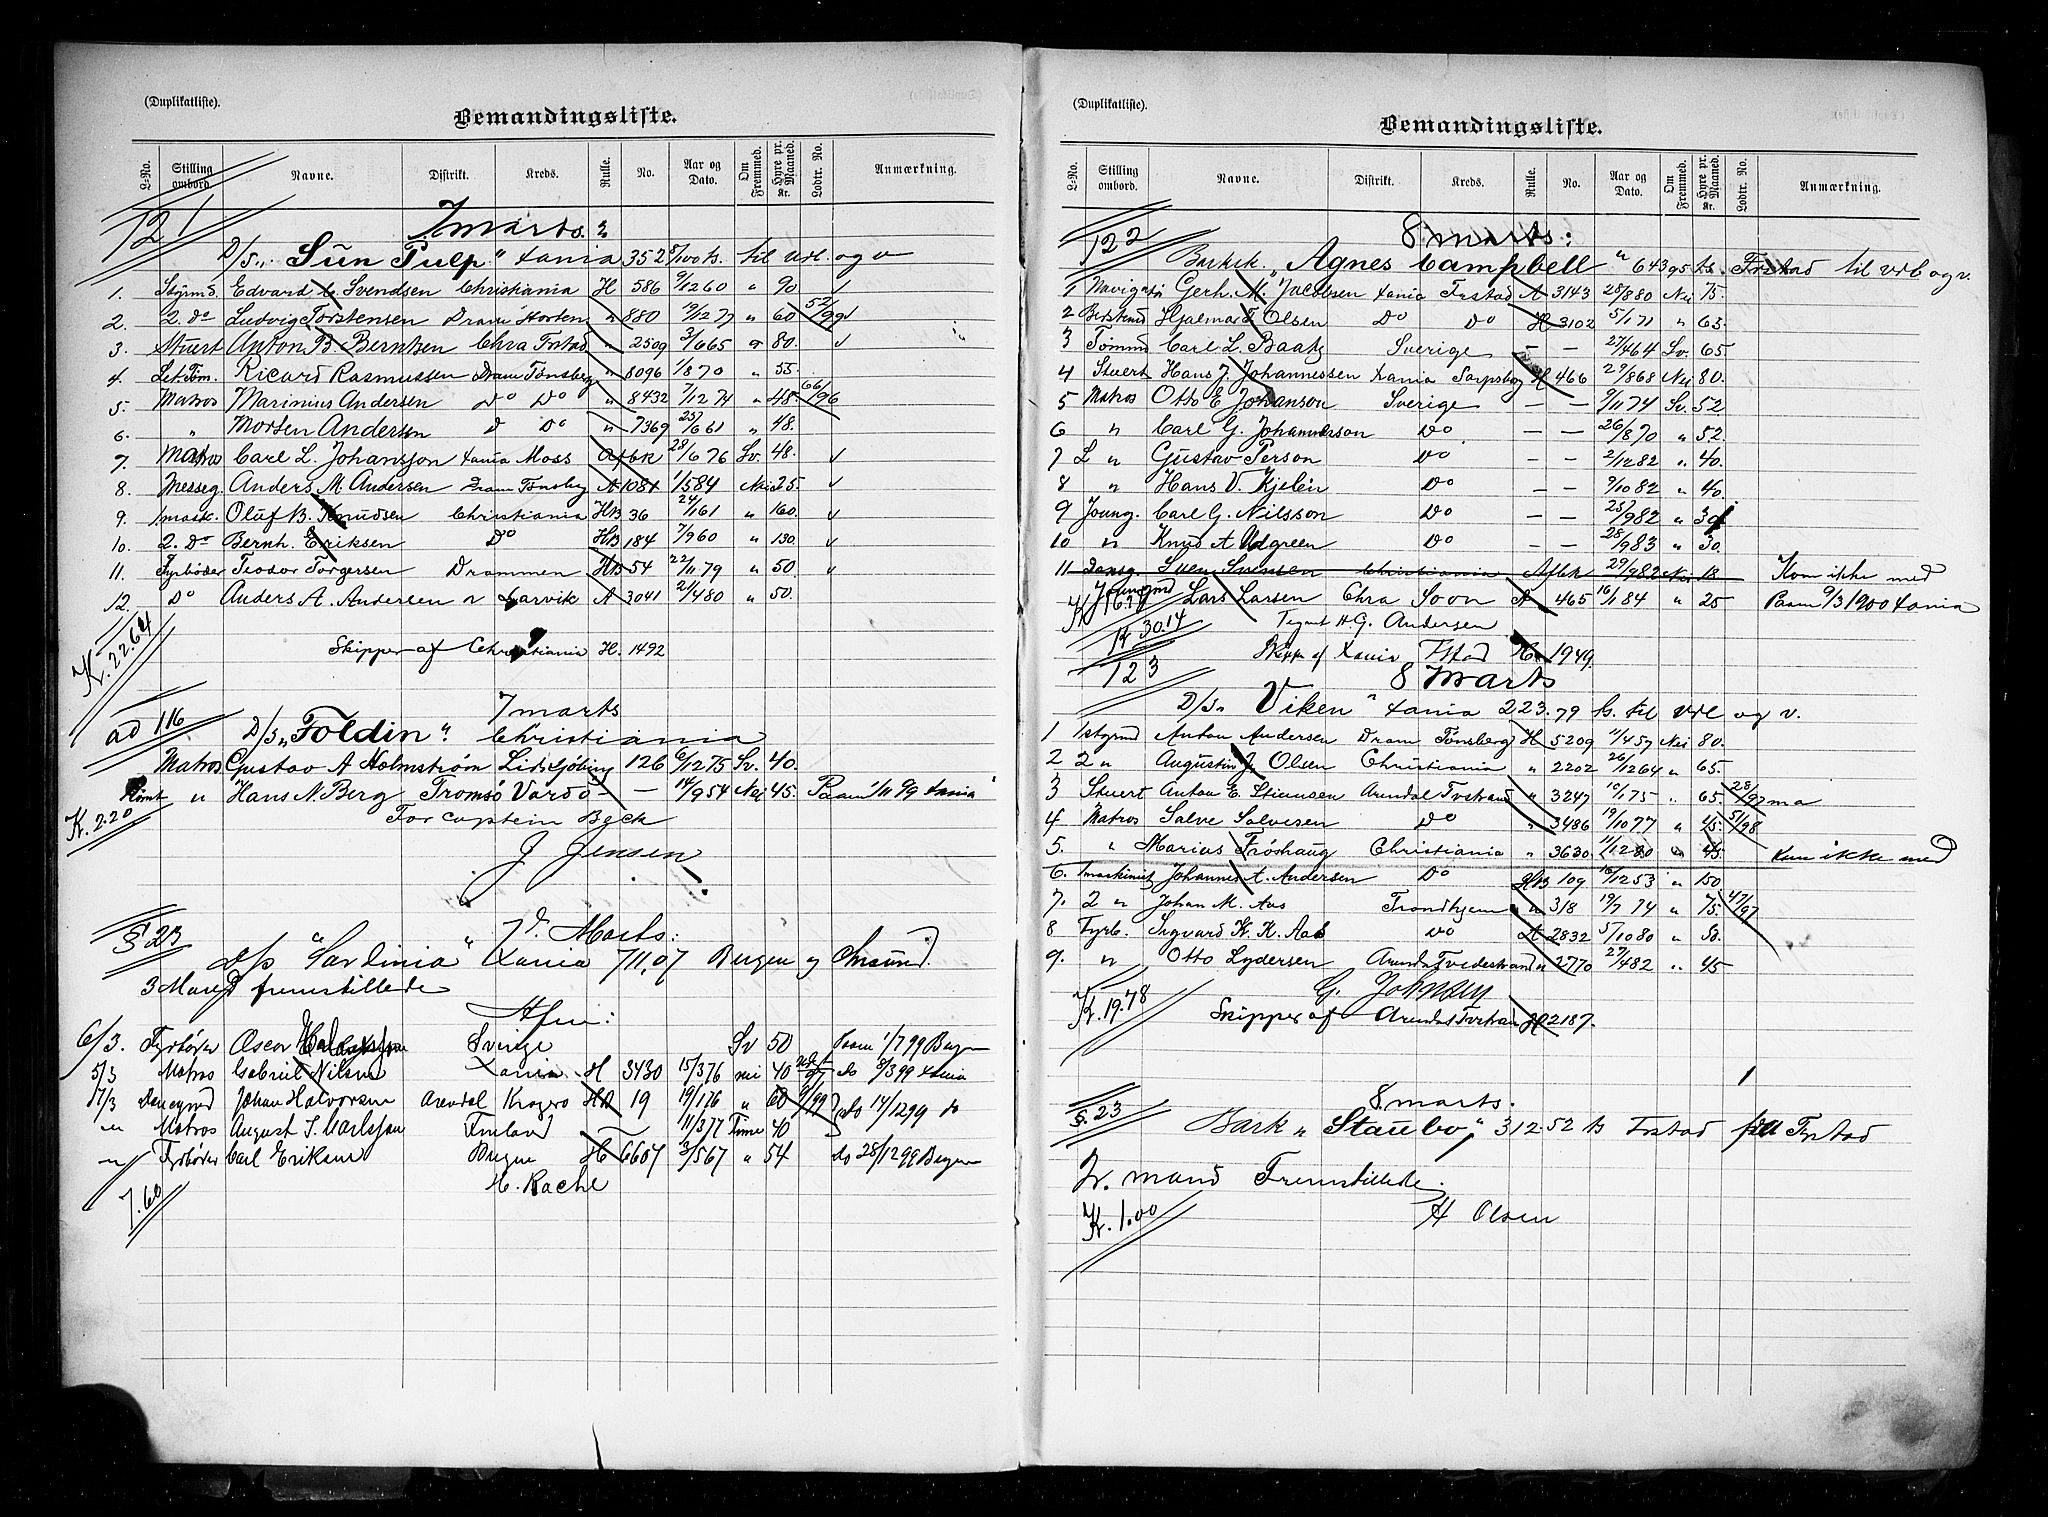 (Duplikatliste).
Bemandingsliste.
L-No. Stilling ombord. Navne. Distrikt. Kreds. Rulle. No. Aar og Dato. Om Fremmed. Hyre pr. Maaned. Kr. Lodtr. No. Anmærkning.
121 7 marts.
D/S „Sun Pulp" Xania 352 8/100 ts. til Udl. og v
1. Styrmd. Edvard C. Svendsen Christiania H 586 9/12 60 " 90 v
2. 2. Do Ludvig Torstensen Dram Horten " 880 19/12 77 " 60 52/99 v
3. Stuert Anton B. Berntsen Chra Frstad " 2509 3/6 65 " 80. v
4. Let.Töm. Ricard Rasmussen Dram Tønsberg " 8096 1/8 70 " 55.
5. Matros Marinius Andersen Do Do " 8432 7/12 74 " 48. 66/96
6. " Morten Andersen D Do " 7369 25/6 61 " 48.
7. Matros Carl L. Johansson Xania Moss Afbk 28/6 76 Sv. 48. v
8. Messeg. Anders M. Andersen Dram Tønsbg A 1084 1/5 84 Nei 25. v
9. 1 mask. Oluf B. Knudsen Christiania HB 36 24/1 61 " 160. v
10. 2. Do Bernh. Eriksen Do HB 184 7/9 60 " 130. v
11. Fyrbøder Teodor Torgersen Drammen HB 54 22/11 79 " 50. v
12. Do Anders A. Andersen " Larvik A 3041 21/4 80 " 50.
Kr. 22.64
Skipper af Christiania H. 1492
7 marts
ad 116 D/S „Foldin". Christiania
Matros Gustav A Holmstrøm Lidkjöbing 126 6/12 75 Sv. 40.
Rømt " Hans N. Berg Tromsö Vardö — 14/9 54 Nei 45. Paam 1/11 99 Xania
Kr. 2.20 For captein Byck
J Jensen
§ 23 7d. Marts:
D/S "Sardinia" Xania 711,07 Bergen og Chrsund
3 Mand fremstillede
Afm:
6/3. Fyrbøder Oscar Sverige Sv 50 Paam 1/7 99 Bergen
5/3 Matros Gabriel Nilsen Xania H 3430 15/3 76 nei 40 do 8/3 99 Xania
7/3 Donkeymd Johan Halvorsen Arendal Kragerø HB 19 19/1 76 " 60 9/99 do 14/12 99 do
" Matros August S. Karlsson Finland 11/3 77 Finne 40
" Fyrbøder Carl Eriksen Bergen H 6607 3/5 67 " 54 do 28/12 99 Bergen
7.60 H. Rache
(Duplikatliste).
Bemandingsliste.
L-No. Stilling ombord. Navne. Distrikt. Kreds. Rulle. No. Aar og Dato. Om Fremmed. Hyre pr. Maaned. Kr. Lodtr. No. Anmærkning.
122 8 marts:
Barksk. „Agnes Campbell" 643 95 ts. Frstad til Udl og v.
1 Navigatör Gerh. M. Jacobsen Xania Frstad A 3143 28/8 80 Nei 75.
2 Bestmd Hjalmar F. Olsen Do Do H 3102 5/1 71 " 65.
3 Tömmd Carl L. Baatz Sverige — — 27/4 64 Sv. 65.
4 Stuert Hans J. Johannessen Xania Sarpsbog H 466 29/8 68 Nei 80.
5 Matros Otto E Johanson Sverige — — 9/11 74 Sv. 52
6 " Carl G. Johannesson Do — — 26/8 70 " 52.
7 L " Gustav Person Do — — 2/12 82 " 40.
8 " Hans V. Kjelén Do — — 9/10 82 " 40.
9 Joung. Carl G. Nilsson Do — — 25/9 82 " 30
10 " Knud A Udgreen Do — — 28/9 83 " 30.
11 Dæksg. Sven Svensen Christiania Afbk 29/9 82 Nei 18 Kom ikke med
Joungmd Lars Larsen Chra Soon A 465 16/1 84 " 25 Paam 9/3 1900 Xania
Kr 30.14 Tegnet H. G. Andersen
Skipper af Xania Fstad 1949.
123 8 Marts
D/S „Viken" Xania 223.79 ts. til Udl og v.
1 1 styrmd Anton Andersen Dram Tønsberg H 5209 11/4 57 Nei 80.
2 2 " Augustin J. Olsen Christiania " 2202 26/12 64 " 65.
3 Stuert Anton E. Stiansen Arendal Tvstrand " 3247 10/1 75 " 65. 28/97 ma
4 Matros Salve Salvesen Do " 3486 19/10 77 " 45. 51/98
5. " Marius Frøshaug Christiania " 3630 11/12 80 " 45 Kom ikke med
6. 1 maskinist Johannes A. Andersen Do HB 109 16/12 53 " 150
7. 2 " Johan M. Aas Trondhjem " 318 19/7 74 " 75. 47/97
8 Fyrb. Sigvard K. K. Aas Do A 2832 5/10 80 " 50.
9. " Otto Lydersen Arendal Tvedestrand " 2770 27/4 82 " 45
G. Johnsen
Kr. 19.78 Skipper af Arendal Tvstrand H 2187.
8 marts.
§. 23 Bark „Staubo" 312 52 ts Frstad fra Frstad
2. mand Fremstillede.
Kr. 1.00 H Olsen